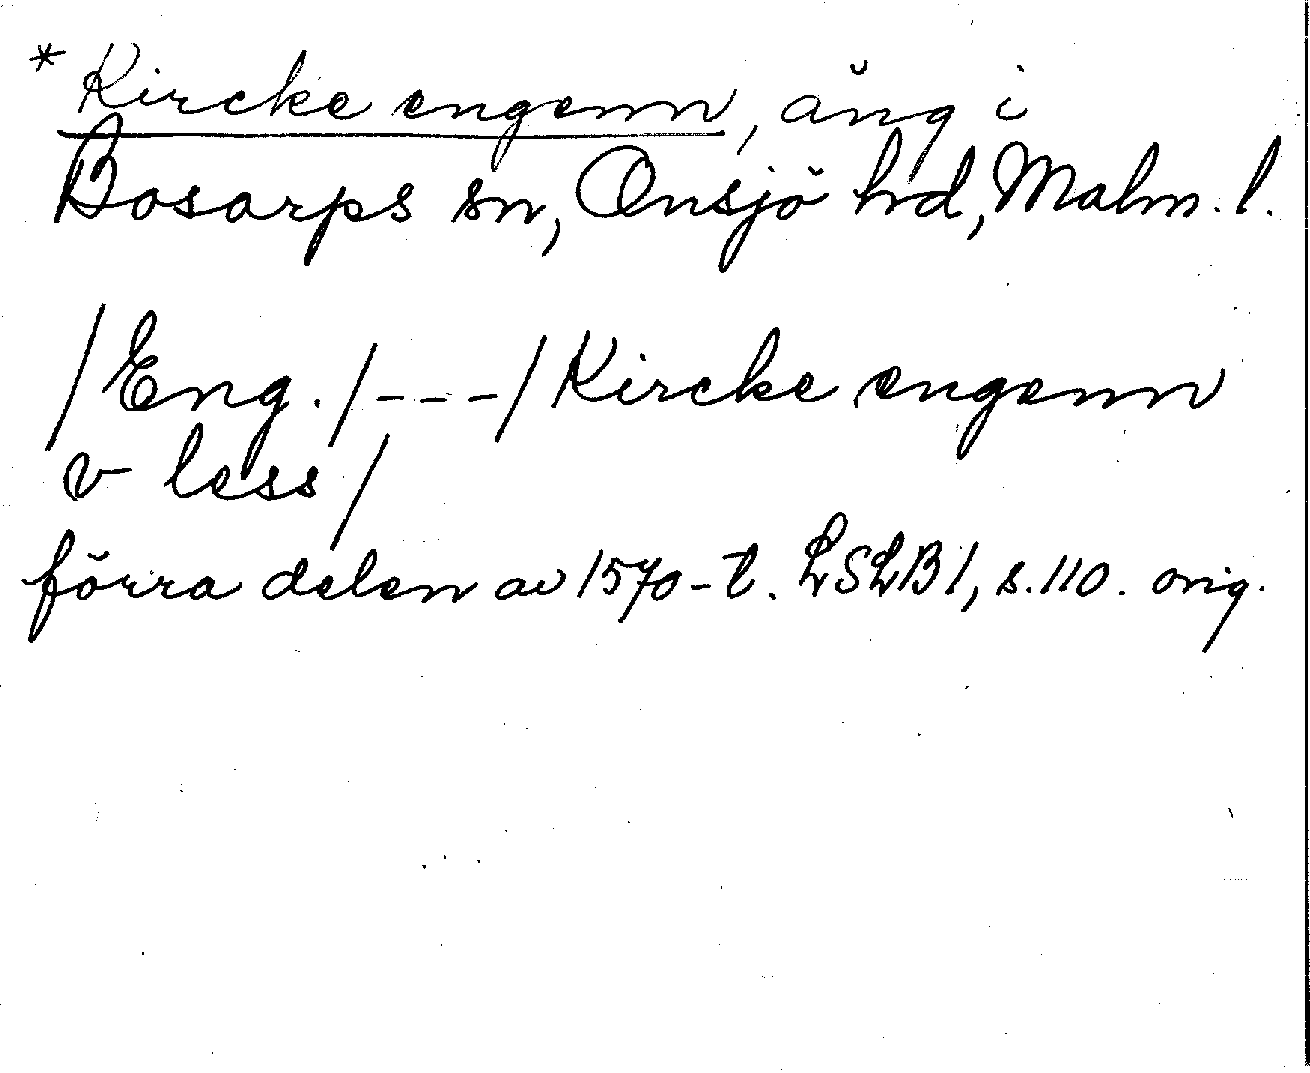 * Kircke engenn, äng i
Bosarps sn, Onsjö hd, Malm. l.
/Eng./---/Kircke engenn
v less/
förra delen av 1570-t. LSLB 1, s. 110. orig.